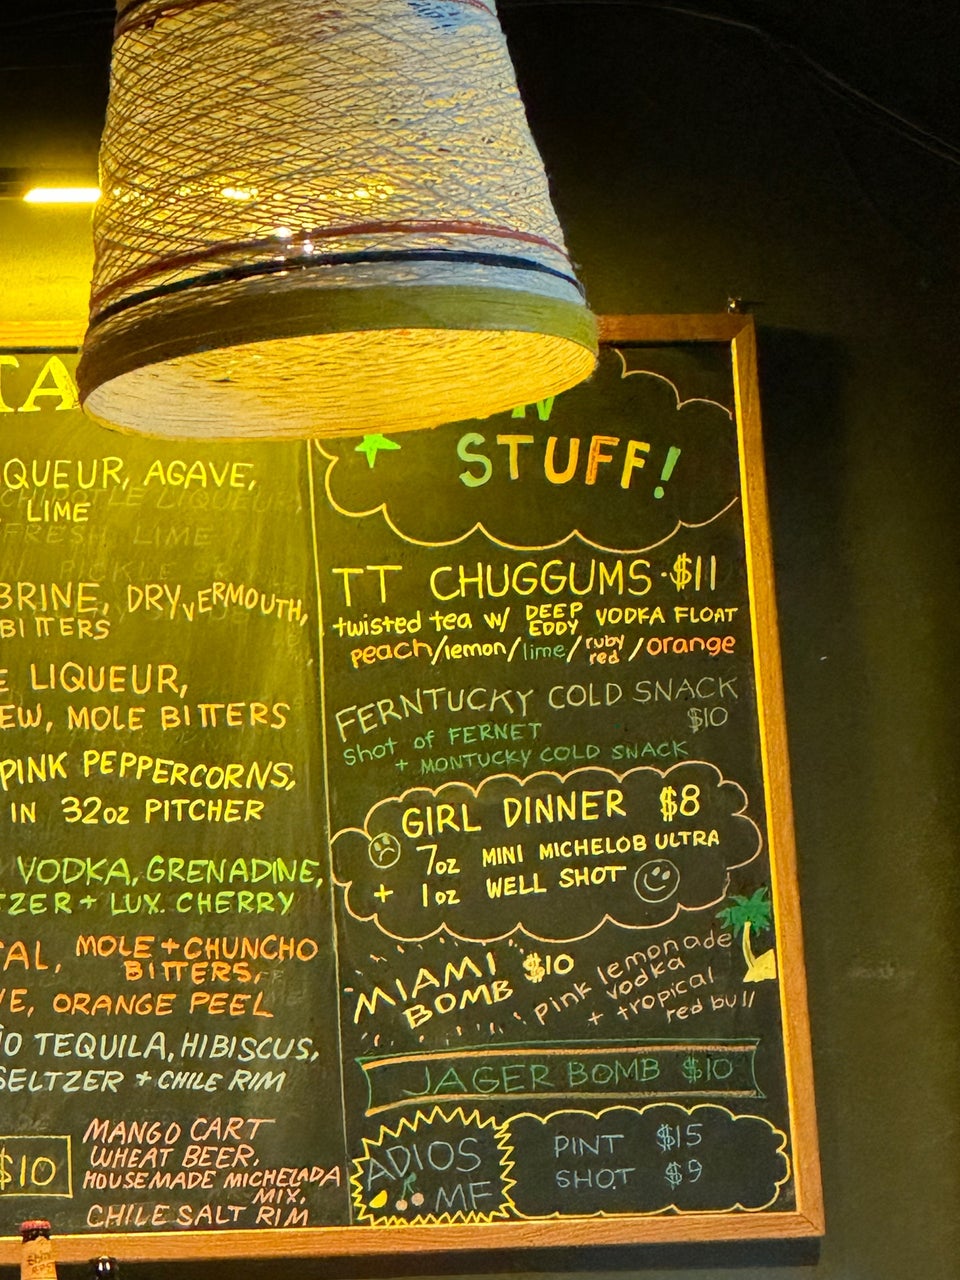 TA
QUEUR, AGAVE,
LIME
CHIPOTLE LIQUEUR,
FRESH LIME
BRINE, DRY VERMOUTH,
BITTERS
LIQUEUR,
EW, MOLE BITTERS
PINK PEPPERCORNS,
IN 32oz PITCHER
VODKA, GRENADINE,
ZER + LUX. CHERRY
AL, MOLE + CHUNCHO
BITTERS,
E, ORANGE PEEL
O TEQUILA, HIBISCUS,
SELTZER + CHILE RIM
$10
MANGO CART
WHEAT BEER,
HOUSEMADE MICHELADA
MIX,
CHILE SALT RIM
STUFF!
TT CHUGGUMS · $11
twisted tea w/ DEEP EDDY VODKA FLOAT
peach/lemon/lime/ruby red/orange
FERNTUCKY COLD SNACK
$10
shot of FERNET
+ MONTUCKY COLD SNACK
GIRL DINNER $8
7oz MINI MICHELOB ULTRA
+ 1oz WELL SHOT
MIAMI BOMB $10
pink lemonade
vodka
+ tropical
red bull
JAGER BOMB $10
ADIOS
MF
PINT $15
SHOT $9